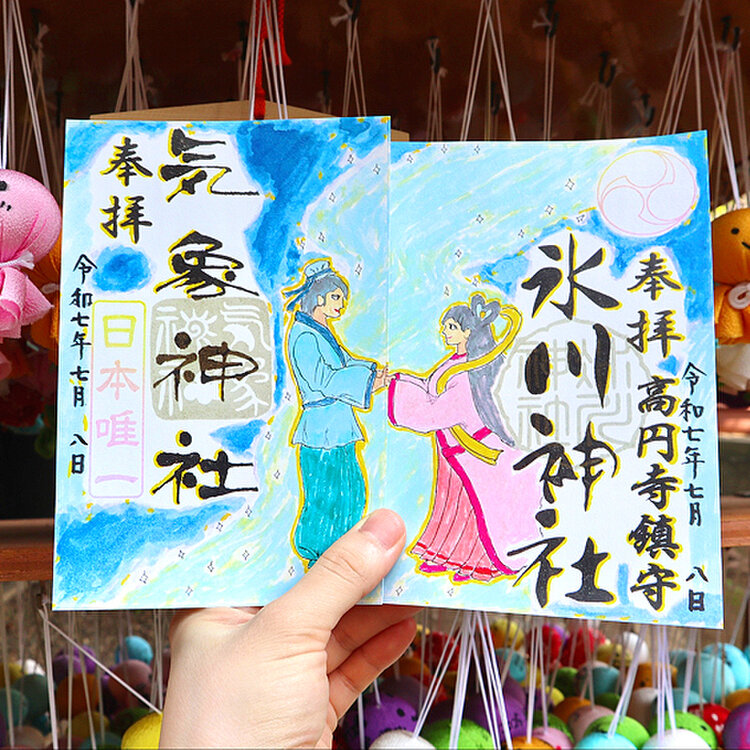 奉拝
気象神社
日本唯一
令和七年七月 八日
奉拝
氷川神社
高円寺鎮守
令和七年七月 八日